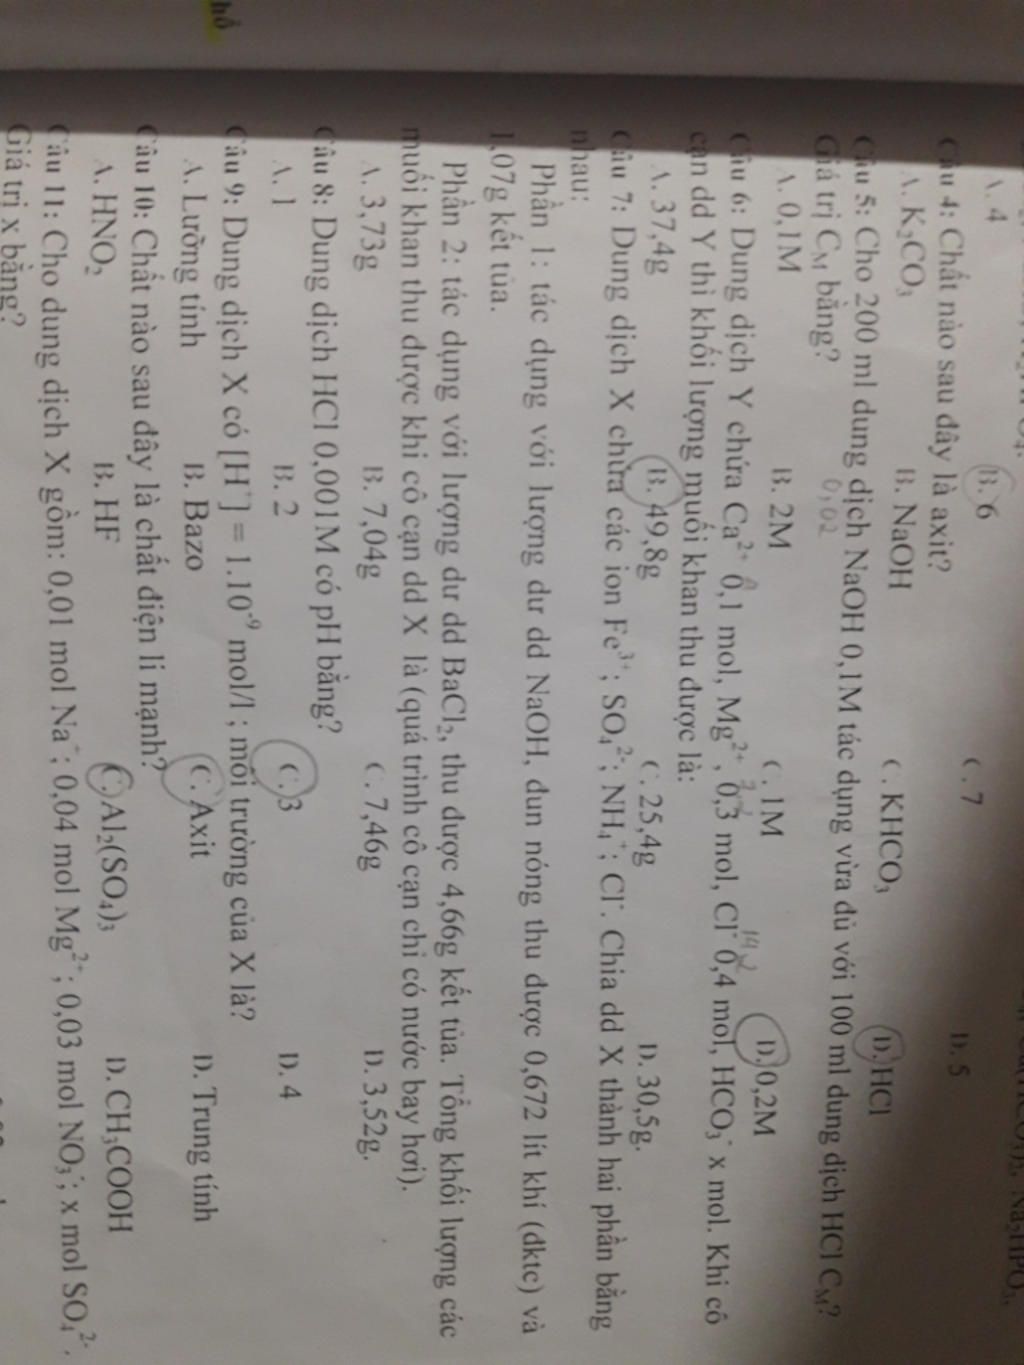 A. 4 B. 6 C. 7 D. 5
Câu 4: Chất nào sau đây là axit?
A. K₂CO₃ B. NaOH C. KHCO₃ D. HCl
Câu 5: Cho 200 ml dung dịch NaOH 0,1M tác dụng vừa đủ với 100 ml dung dịch HCl C_M?
0,02
Giá trị C_M bằng?
A. 0,1M B. 2M C. 1M D. 0,2M
Câu 6: Dung dịch Y chứa Ca²⁺ 0,1 mol, Mg²⁺, 0,3 mol, Cl⁻ 0,4 mol, HCO₃⁻ x mol. Khi cô
cạn dd Y thì khối lượng muối khan thu được là:
A. 37,4g B. 49,8g C. 25,4g D. 30,5g.
Câu 7: Dung dịch X chứa các ion Fe³⁺; SO₄²⁻; NH₄⁺; Cl⁻. Chia dd X thành hai phần bằng
nhau:
Phần 1: tác dụng với lượng dư dd NaOH, đun nóng thu được 0,672 lít khí (dktc) và
1,07g kết tủa.
Phần 2: tác dụng với lượng dư dd BaCl₂, thu được 4,66g kết tủa. Tổng khối lượng các
muối khan thu được khi cô cạn dd X là (quá trình cô cạn chỉ có nước bay hơi).
A. 3,73g B. 7,04g C. 7,46g D. 3,52g.
Câu 8: Dung dịch HCl 0,001M có pH bằng?
A. 1 B. 2 C. 3 D. 4
Câu 9: Dung dịch X có [H⁺] = 1.10⁻⁹ mol/l ; môi trường của X là?
A. Lưỡng tính B. Bazo C. Axit D. Trung tính
Câu 10: Chất nào sau đây là chất điện li mạnh?
A. HNO₂ B. HF C. Al₂(SO₄)₃ D. CH₃COOH
Câu 11: Cho dung dịch X gồm: 0,01 mol Na⁺; 0,04 mol Mg²⁺; 0,03 mol NO₃⁻; x mol SO₄²⁻.
Giá trị x bằng?
hổ